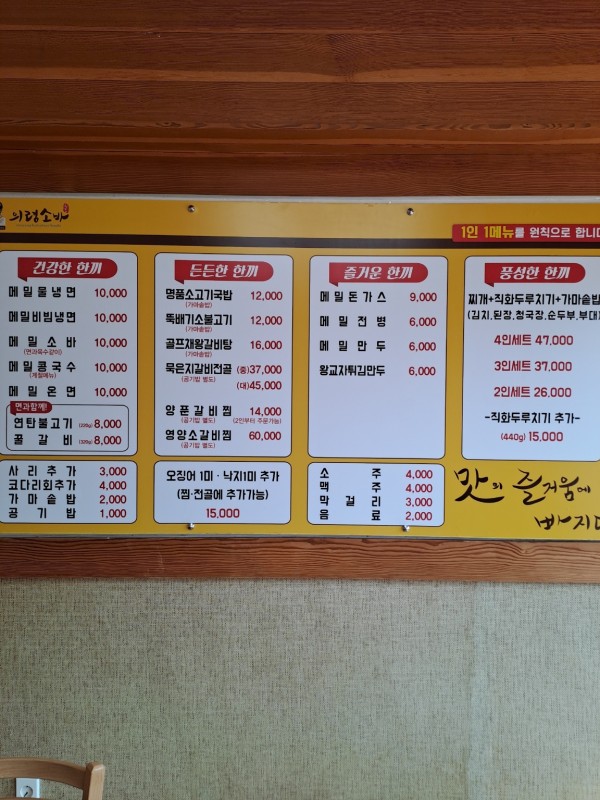 의령소바
1인 1메뉴를 원칙으로 합니다
건강한 한끼
메밀물냉면 10,000
메밀비빔냉면 10,000
메밀소바 10,000
(면과육수같이)
메밀콩국수 10,000
(계절메뉴)
메밀온면 10,000
면과함께!
연탄불고기 (220g) 8,000
골갈비 8,000
사리추가 3,000
코다리회추가 4,000
가마솥밥 2,000
공기밥 1,000
든든한 한끼
명품소고기국밥 12,000
(가마솥밥)
뚝배기소불고기 12,000
(가마솥밥)
골프채왕갈비탕 16,000
(가마솥밥)
묵은지갈비전골 (중)37,000
(공기밥 별도) (대)45,000
양푼갈비찜 14,000
(공기밥 별도) (2인부터 주문가능)
영양소갈비찜 60,000
(공기밥 별도)
오징어 1미 · 낙지1미 추가
(찜·전골에 추가가능)
15,000
즐거운 한끼
메밀돈가스 9,000
메밀전병 6,000
메밀만두 6,000
왕교자튀김만두 6,000
소주 4,000
맥주 4,000
막걸리 3,000
음료 2,000
풍성한 한끼
찌개+직화두루치기+가마솥밥
(김치,된장,청국장,순두부,부대
4인세트 47,000
3인세트 37,000
2인세트 26,000
-직화두루치기 추가-
(440g) 15,000
맛의 즐거움에
빠지다